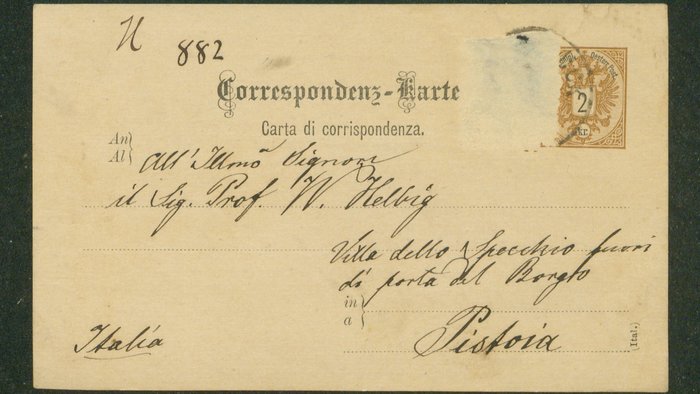 N 882
Correspondenz-Karte
Carta di corrispondenza.
2
kr.
An
Al
All' Illmo Signore
il Sig. Prof. W. Helbig
Villa dello Specchio fuori
di porta del Borgo
in
a
Pistoia
Italia
(Ital.)